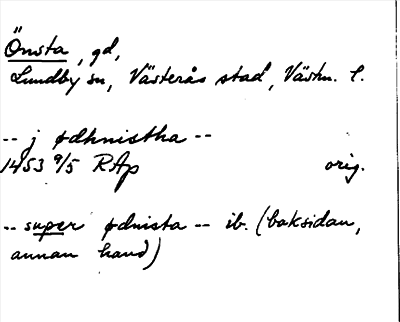 Önsta, gd,
Lundby sn, Västerås stad, Västm. l.
-- j ødhnistha --
1453 9/5 RAp orig.
-- super ødnista -- ib. (baksidan,
annan hand)